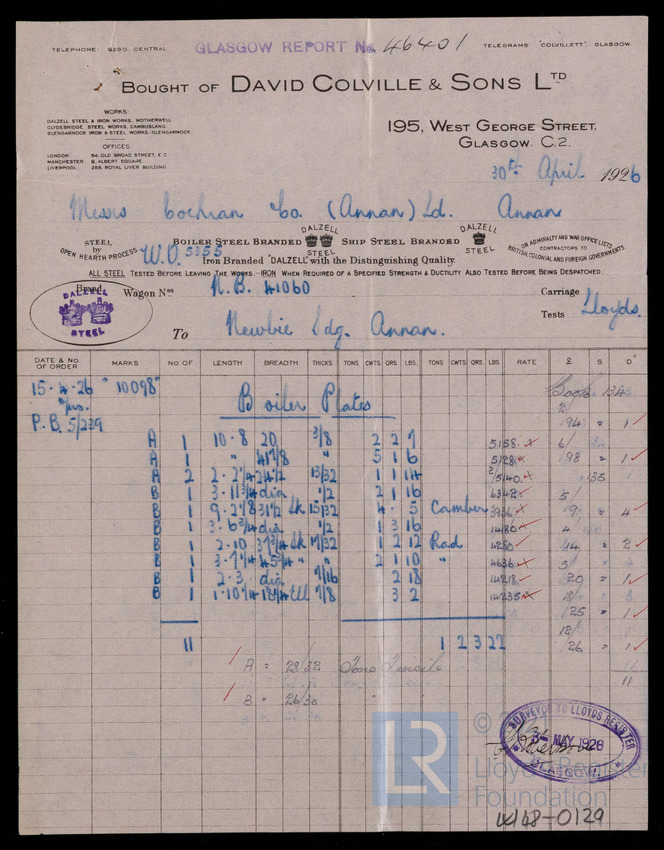 TELEPHONE 9280 CENTRAL GLASGOW REPORT No. 46401 TELEGRAMS "COLVILLETT" GLASGOW
BOUGHT OF DAVID COLVILLE & SONS LTD
WORKS
DALZELL STEEL & IRON WORKS, MOTHERWELL
CLYDEBRIDGE STEEL WORKS, CAMBUSLANG
GLENGARNOCK IRON & STEEL WORKS, GLENGARNOCK
OFFICES
LONDON 54, OLD BROAD STREET, E.C.
MANCHESTER 9, ALBERT SQUARE
LIVERPOOL 288, ROYAL LIVER BUILDING
195, WEST GEORGE STREET,
GLASGOW. C.2.
30th April 1926
Messrs Cochran Co. (Annan) Ld. Annan
STEEL by OPEN HEARTH PROCESS
W.O. 5355
BOILER STEEL BRANDED DALZELL STEEL SHIP STEEL BRANDED DALZELL STEEL
ON ADMIRALTY AND WAR OFFICE LISTS
CONTRACTORS TO
BRITISH, COLONIAL AND FOREIGN GOVERNMENTS
Iron Branded "DALZELL" with the Distinguishing Quality.
ALL STEEL TESTED BEFORE LEAVING THE WORKS.—IRON WHEN REQUIRED OF A SPECIFIED STRENGTH & DUCTILITY ALSO TESTED BEFORE BEING DESPATCHED.
Brand DALZELL STEEL
Wagon Nos N.B. 41060 Carriage
Tests Lloyds.
To Newbie Ldg. Annan.
DATE & NO. OF ORDER MARKS NO OF LENGTH BREADTH THICKS. TONS CWTS. QRS. LBS. TONS CWTS. QRS. LBS. RATE £ S D
15-4-26 "10098"
P.B. 5/239
Boiler Plates
194 " 1
A 1 10-8 20 3/8 2 2 7 5158
A 1 " 41 7/8 5 1 6 5128 198 " 1
A 2 2-2 1/4 24 1/2 13/32 1 1 14 5140
B 1 3-11 3/4 dia 1/2 2 1 16 6342
B 1 9-2 7/8 31 1/2 Lk 15/32 4 - 5 Camber 3936 19 " 4
B 1 3-6 3/4 dia 1/2 1 3 16 14180
B 1 2-10 37 3/4 Lk 17/32 1 2 12 Rad 4250 44 " 2
B 1 3-7 1/4 45 3/4 " " 2 1 10 " 4636
B 1 2-3 dia 7/16 2 18 14218 20 " 1
B 1 1-10 1/4 18 1/4 7/8 3 2 14235
125 " 1
11 1 2 3 22 26 " 1
A = 28/32 Tons Tensile
11
B = 26/30 " "
SURVEYOR TO LLOYDS REGISTER
3 - MAY 1926
GLASGOW
LR
©
Lloyd's Register
Foundation
4148-0129